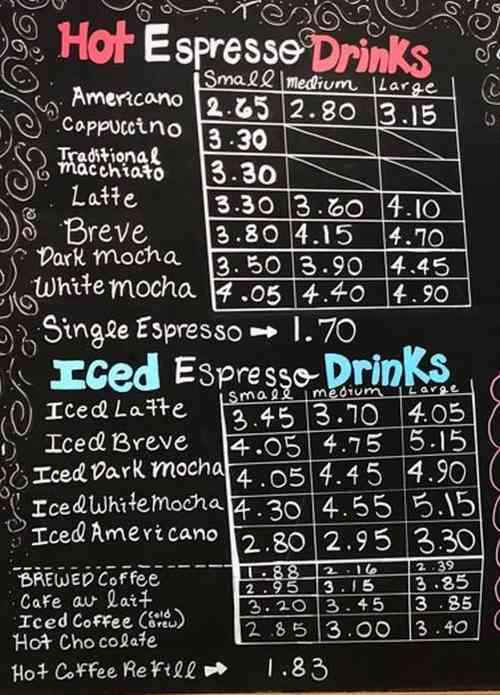 Hot Espresso Drinks
Small medium Large
Americano 2.65 2.80 3.15
Cappuccino 3.30
Traditional macchiato 3.30
Latte 3.30 3.60 4.10
Breve 3.80 4.15 4.70
Dark mocha 3.50 3.90 4.45
White mocha 4.05 4.40 4.90
Single Espresso → 1.70
Iced Espresso Drinks
Small medium Large
Iced Latte 3.45 3.70 4.05
Iced Breve 4.05 4.75 5.15
Iced Dark mocha 4.05 4.45 4.90
Iced White mocha 4.30 4.55 5.15
Iced Americano 2.80 2.95 3.30
BREWED Coffee 1.88 2.16 2.39
Cafe au lait 2.95 3.15 3.85
Iced Coffee (Cold Brew) 3.20 3.45 3.85
Hot Chocolate 2.85 3.00 3.40
Hot Coffee Refill → 1.83